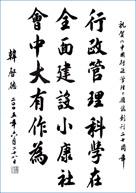 祝贺《中国行政管理》杂志创刊二十周年
行政管理科學在
全面建設小康社
會中大有作為
韓啓德
二〇〇五年六月二十一日